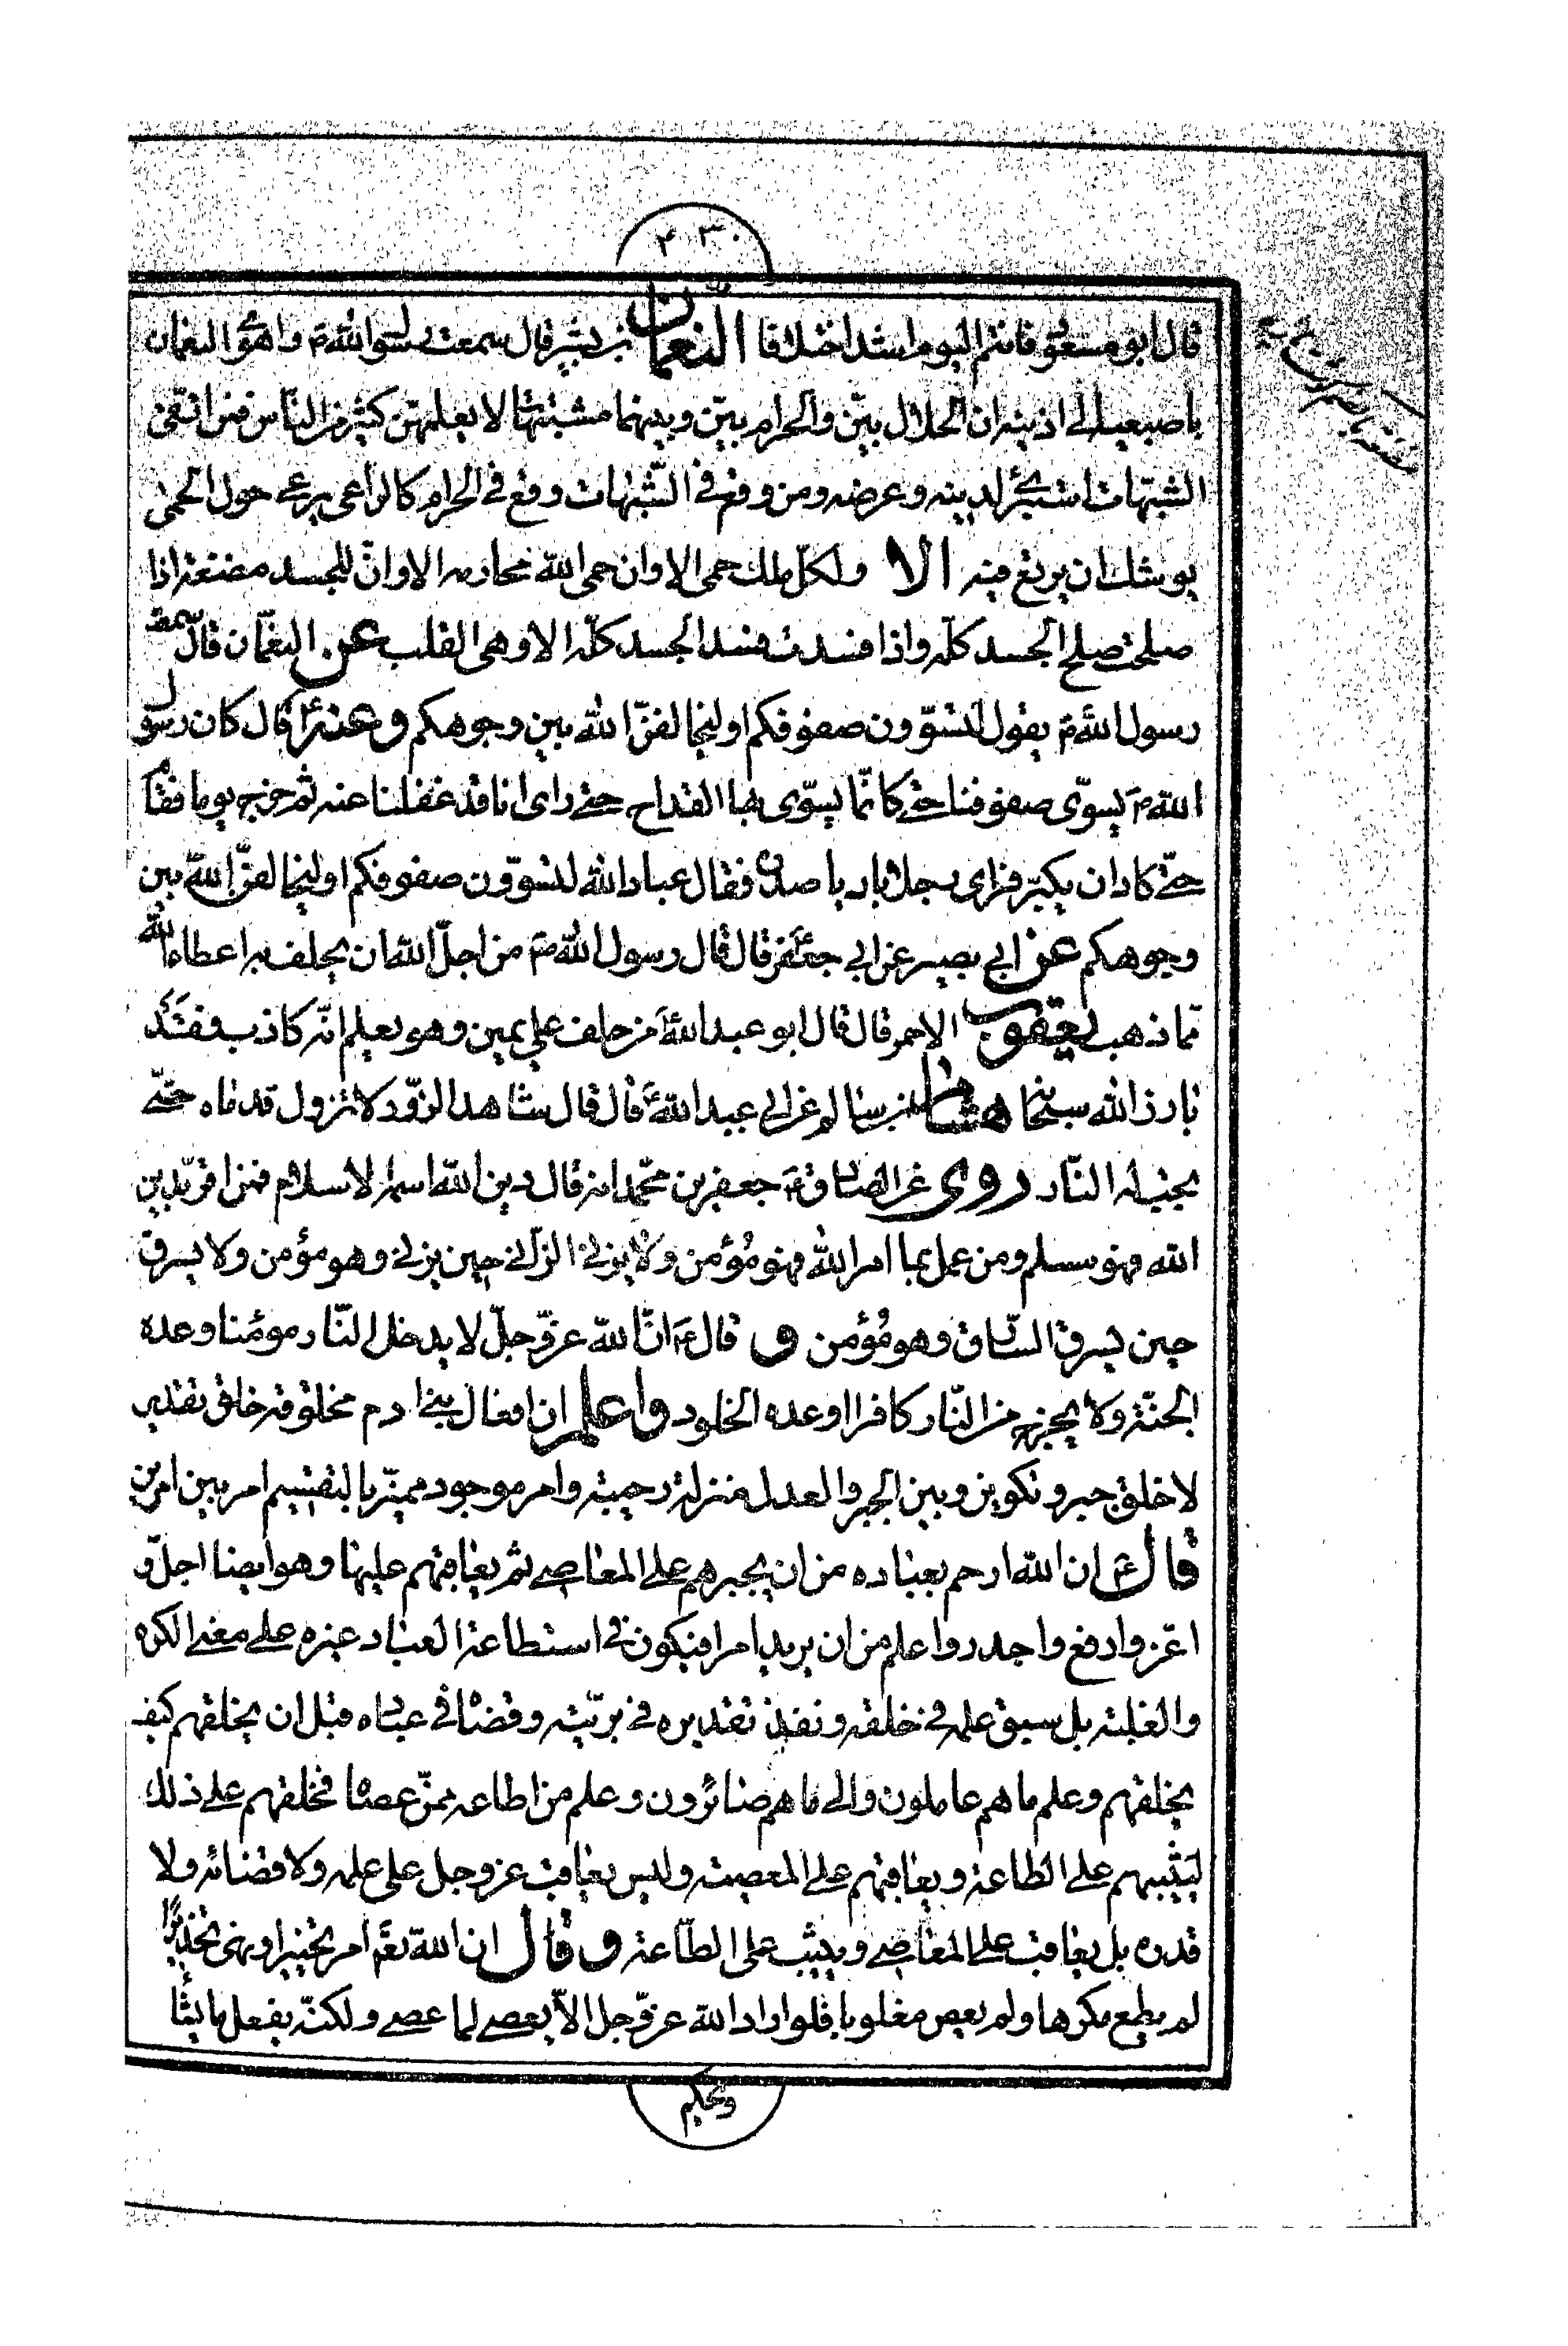 ٢٣٠
قال ابو مسعود فانتم اليوم اشد اختلافا النعمان بن بشير قال سمعت رسول الله ص واهوى النعمان
باصبعيه الى اذنيه ان الحلال بيّن والحرام بيّن وبينهما مشتبهات لا يعلمهنّ كثير من الناس فمن اتقى
الشبهات استبرئ لدينه وعرضه ومن وقع في الشّبهات وقع في الحرام كالراعى يرعى حول الحمى
يوشك ان يرتع فيه الا ولكلّ ملك حمى الا وان حمى الله محارمه الا وانّ للجسد مضغة اذا
صلحت صلح الجسد كلّه واذا فسدت فسد الجسد كلّه الا وهى القلب عن النعّمان قال سمعت
رسول الله ص يقول لتسوّون صفوفكم او ليخالفنّ الله بين وجوهكم وعنه قال كان رسول
الله ص يسوّى صفوفنا حتى كانّما يسوّى بها القداح حتى راى انا قد غفلنا عنه ثم خرج يوما فقام
حتّى كاد ان يكبّر فراى رجلا باديا صدره فقال عباد الله لتسوّون صفوفكم او ليخالفنّ الله بين
وجوهكم عن ابي بصير عن ابي جعفر قال قال رسول الله ص من اجلّ الله ان يحلف به اعطاه الله
ممّا ذهب يعقوب الاحمر قال قال ابو عبد الله ع من حلف على يمين وهو يعلم انّه كاذب فقد
بارز الله سبحانه هشام بن سالم عن ابي عبد الله ع قال قال شاهد الزّور لا تزول قدماه حتّى
يجب له النّار روى عن الصادق ع جعفر بن محمّد انه قال دين الله اسمه الاسلام فمن اقرّ بدين
الله فهو مسلم ومن عمل بما امر الله فهو مُؤمن ولا يزنى الزّانى حين يزنى وهو مؤمن ولا يسرق
حين يسرق السّارق وهو مُؤمن و قال ع انّ الله عزّ وجلّ لا يدخل النّار مومنا وعده
الجنّة ولا يخرج من النّار كافرا اوعده الخلود واعلم ان افعال بنى ادم مخلوقة خلق تقدير
لا خلق جبر وتكوين وبين الجبر والعدل منزلة رحيبة وامر موجود مميّز بالتقسيم امر بين امرين
قال ع ان الله ارحم بعباده من ان يجبرهم على المعاصى ثم يعاقبهم عليها وهو ايضا اجلّ و
اعّز وارفع واجدر واعلم من ان يريد امرا فيكون في استطاعة العباد غيره على معنى الكره
والغلبة بل سبق علمه في خلقه ونفذ تقديره في بريّته وقضاه في عباده قبل ان يخلقهم كيف
يخلقهم وعلم ما هم عاملون والى ما هم صائرون وعلم من اطاعه ممّن عصاه فخلقهم على ذلك
ليثيبهم على الطاعة ويعاقبهم على المعصية وليس يعاقب عز وجل على علمه ولا قضائه ولا
قدره بل يعاقب على المعاصى ويثيب على الطّاعة و قال ان الله تع امر تخييرا ونهى تحذيرا
لم يطع مكرها ولم يعص مغلوبا فلو اراد الله عزّ وجل الاّ يعصى لما عصى ولكنّه يفعل ما يشاء
ويحكم